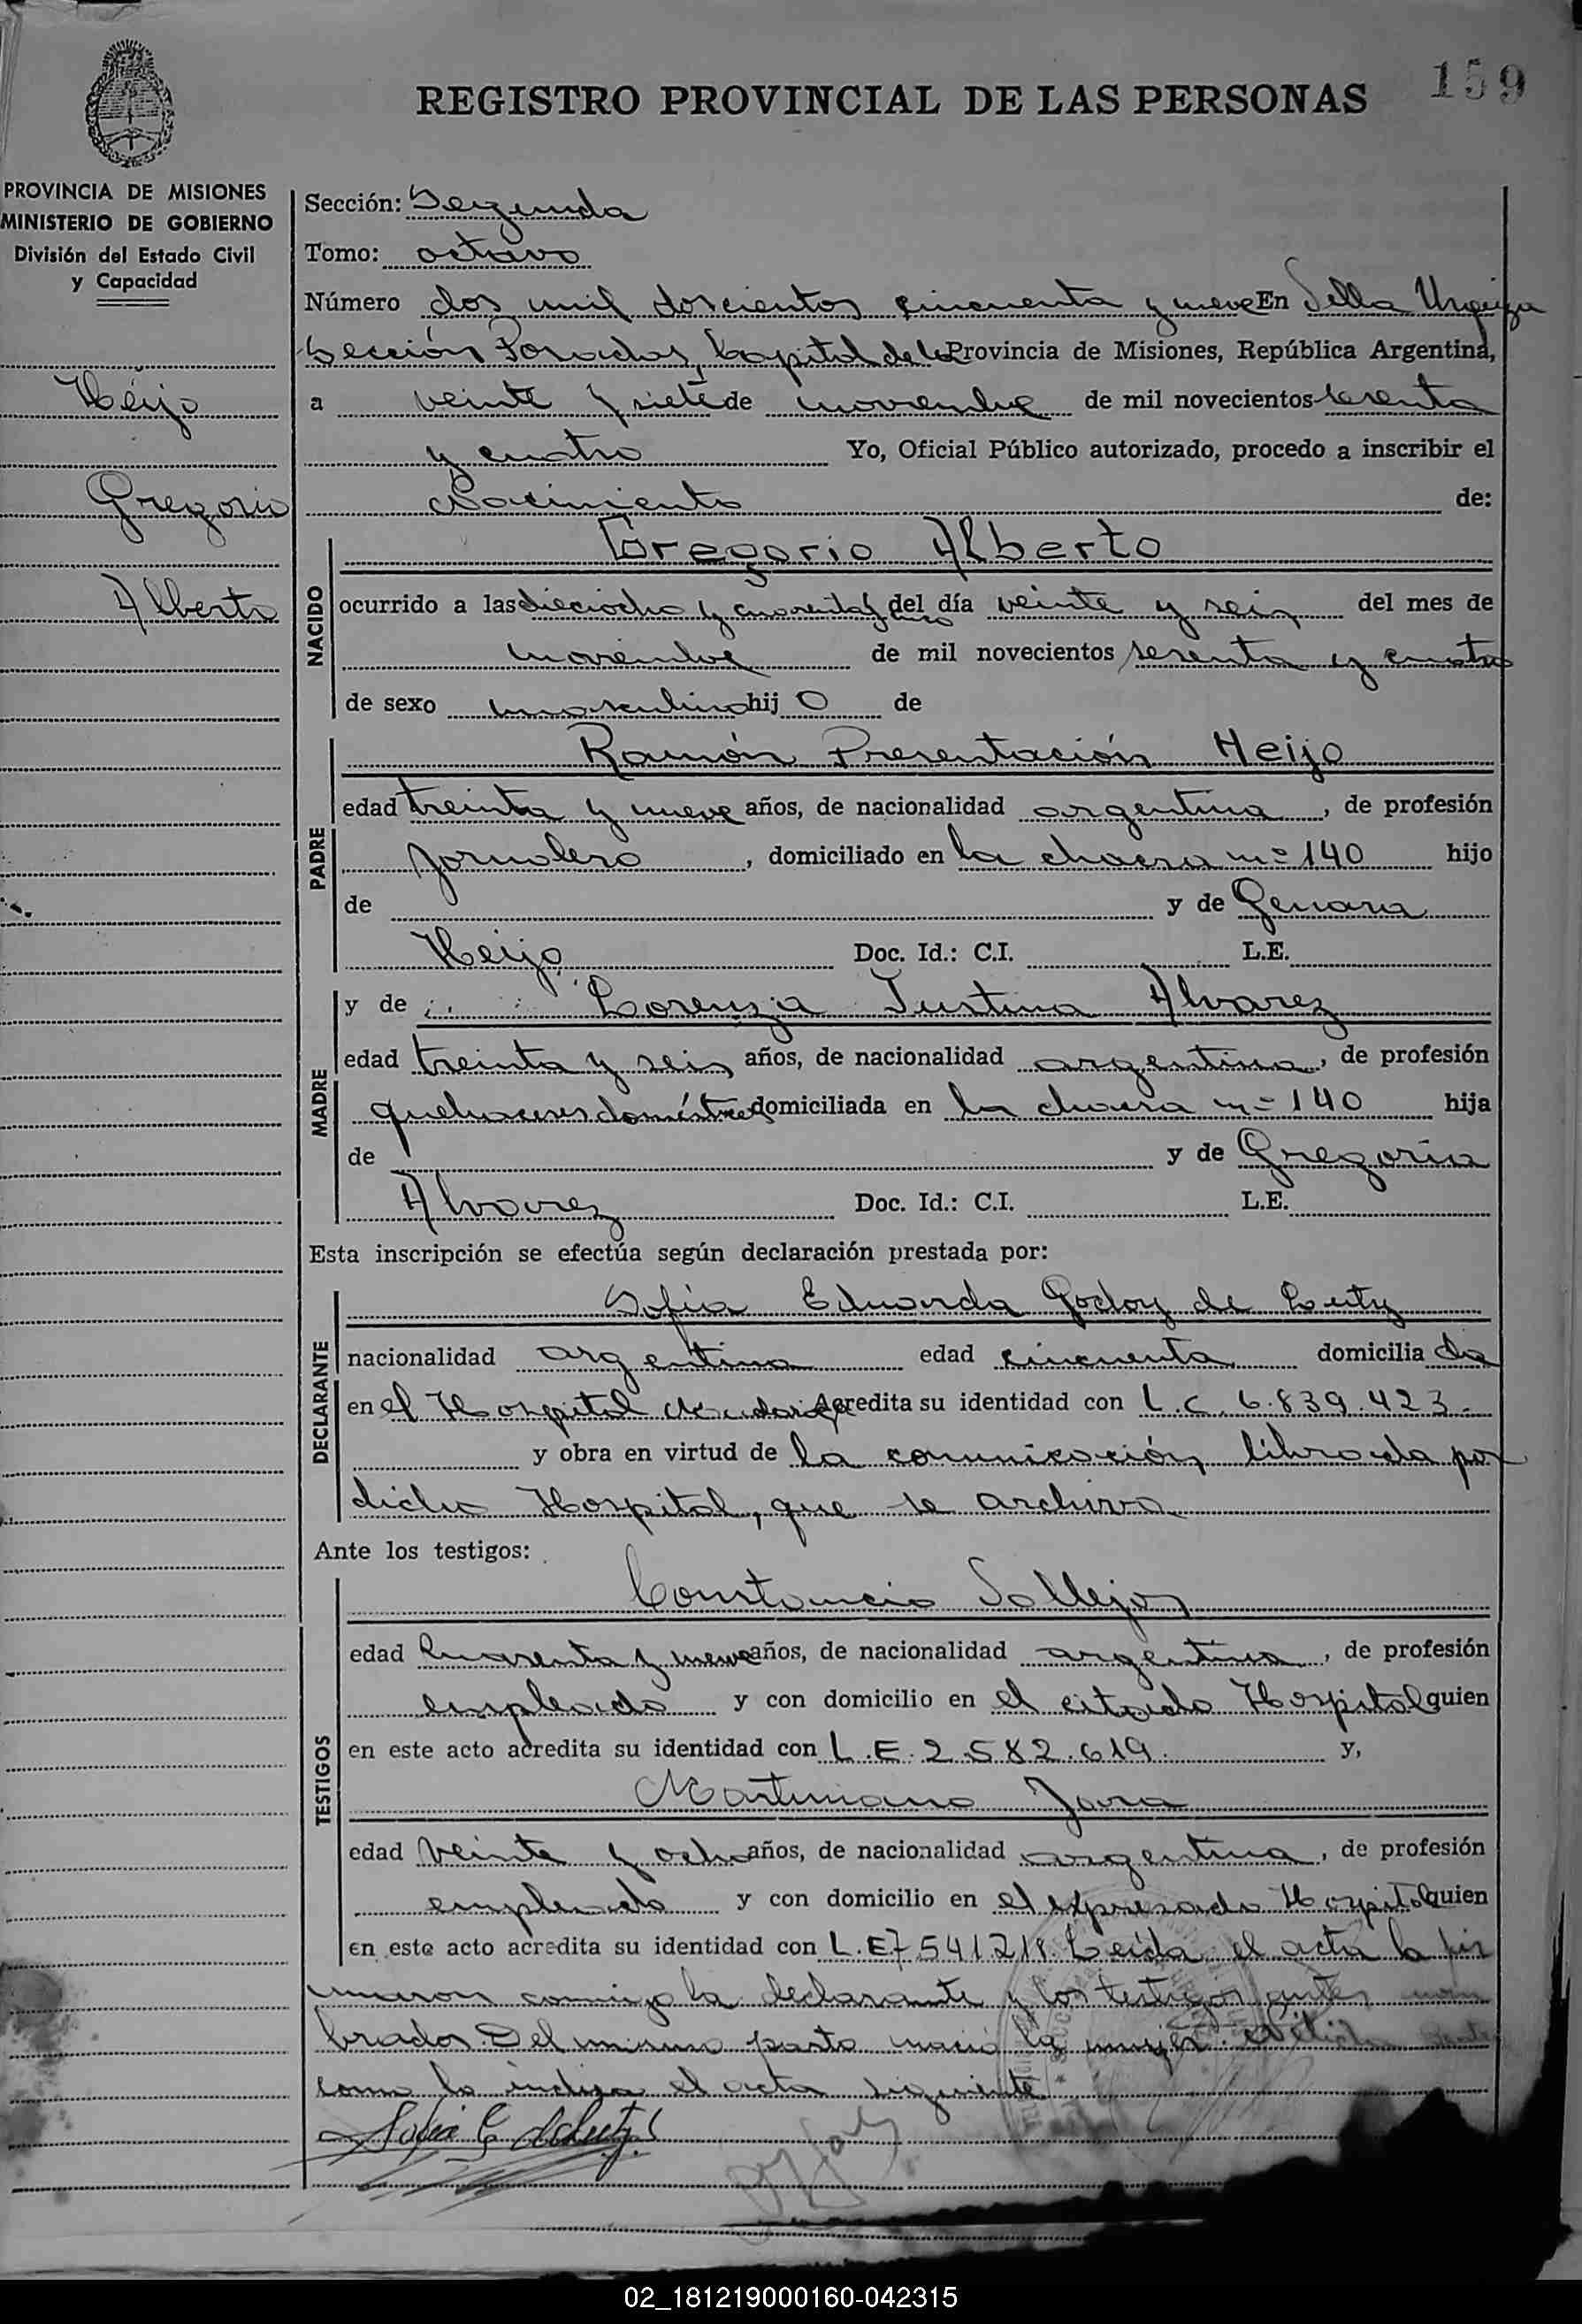 159
REGISTRO PROVINCIAL DE LAS PERSONAS
PROVINCIA DE MISIONES
MINISTERIO DE GOBIERNO
División del Estado Civil
y Capacidad
Heijo
Gregorio
Alberto
Sección: Segunda
Tomo: octavo
Número dos mil doscientos cincuenta y nueve En Villa Urquiza
Sección Posadas, Capital de la Provincia de Misiones, República Argentina,
a veinte y siete de noviembre de mil novecientos sesenta
y cuatro Yo, Oficial Público autorizado, procedo a inscribir el
Nacimiento de:
NACIDO
Gregorio Alberto
ocurrido a las dieciocho y cuarenta y cinco del día veinte y seis del mes de
noviembre de mil novecientos sesenta y cuatro
de sexo masculino hij o de
PADRE
Ramón Presentación Heijo
edad treinta y nueve años, de nacionalidad argentina, de profesión
jornalero, domiciliado en la chacra nº 140 hijo
de y de Genara
Heijo Doc. Id.: C.I. L.E.
MADRE
y de Lorenza Justina Alvarez
edad treinta y seis años, de nacionalidad argentina, de profesión
quehaceres domésticos domiciliada en la chacra nº 140 hija
de y de Gregoria
Alvarez Doc. Id.: C.I. L.E.
Esta inscripción se efectúa según declaración prestada por:
DECLARANTE
Sofía Eduarda Godoy de Lutz
nacionalidad argentina edad cincuenta domicilia da
en el Hospital Madariaga Acredita su identidad con L.C. 6.839.423.
y obra en virtud de la comunicación librada por
dicho Hospital, que se archiva
Ante los testigos:
TESTIGOS
Constancio Vallejos
edad cuarenta y nueve años, de nacionalidad argentina, de profesión
empleado y con domicilio en el citado Hospital quien
en este acto acredita su identidad con L.E. 2.582.619. y,
Martiniano Jara
edad veinte y ocho años, de nacionalidad argentina, de profesión
empleado y con domicilio en el expresado Hospital quien
en este acto acredita su identidad con L.E. 7.541.218. Leída el acta la fir
maron conmigo la declarante y los testigos antes nom
brados. Del mismo parto nació la mujer
como lo indica el acta siguiente
Sofia E de Lutz
02_181219000160-042315